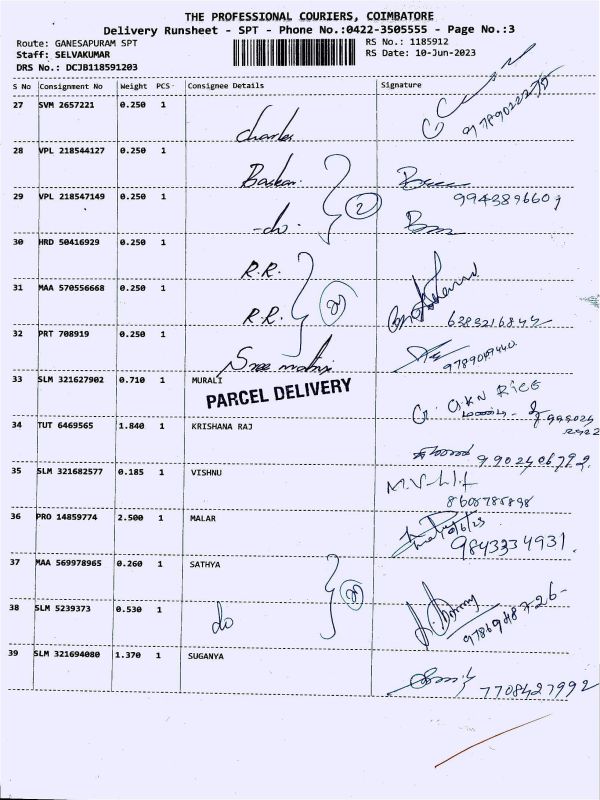 THE PROFESSIONAL COURIERS, COIMBATORE
Delivery Runsheet - SPT - Phone No.:0422-3505555 - Page No.:3
Route: GANESAPURAM SPT RS No.: 1185912
Staff: SELVAKUMAR RS Date: 10-Jun-2023
DRS No.: DCJB118591203
S No Consignment No Weight PCS Consignee Details Signature
27 SVM 2657221 0.250 1
Charles
28 VPL 218544127 0.250 1
Baskar
29 VPL 218547149 0.250 1 2
-do-
30 HRD 50416929 0.250 1
R.R.
31 MAA 570556668 0.250 1
R.R. 6383216844
32 PRT 708919 0.250 1
Sree matrix
33 SLM 321627902 0.710 1 MURALI
PARCEL DELIVERY
G. OKN RICE
34 TUT 6469565 1.840 1 KRISHANA RAJ
9902406792.
35 SLM 321682577 0.185 1 VISHNU
8608785898
36 PRO 14859774 2.500 1 MALAR
9843334931.
37 MAA 569978965 0.260 1 SATHYA
38 SLM 5239373 0.530 1
do
39 SLM 321694080 1.370 1 SUGANYA
7708427992